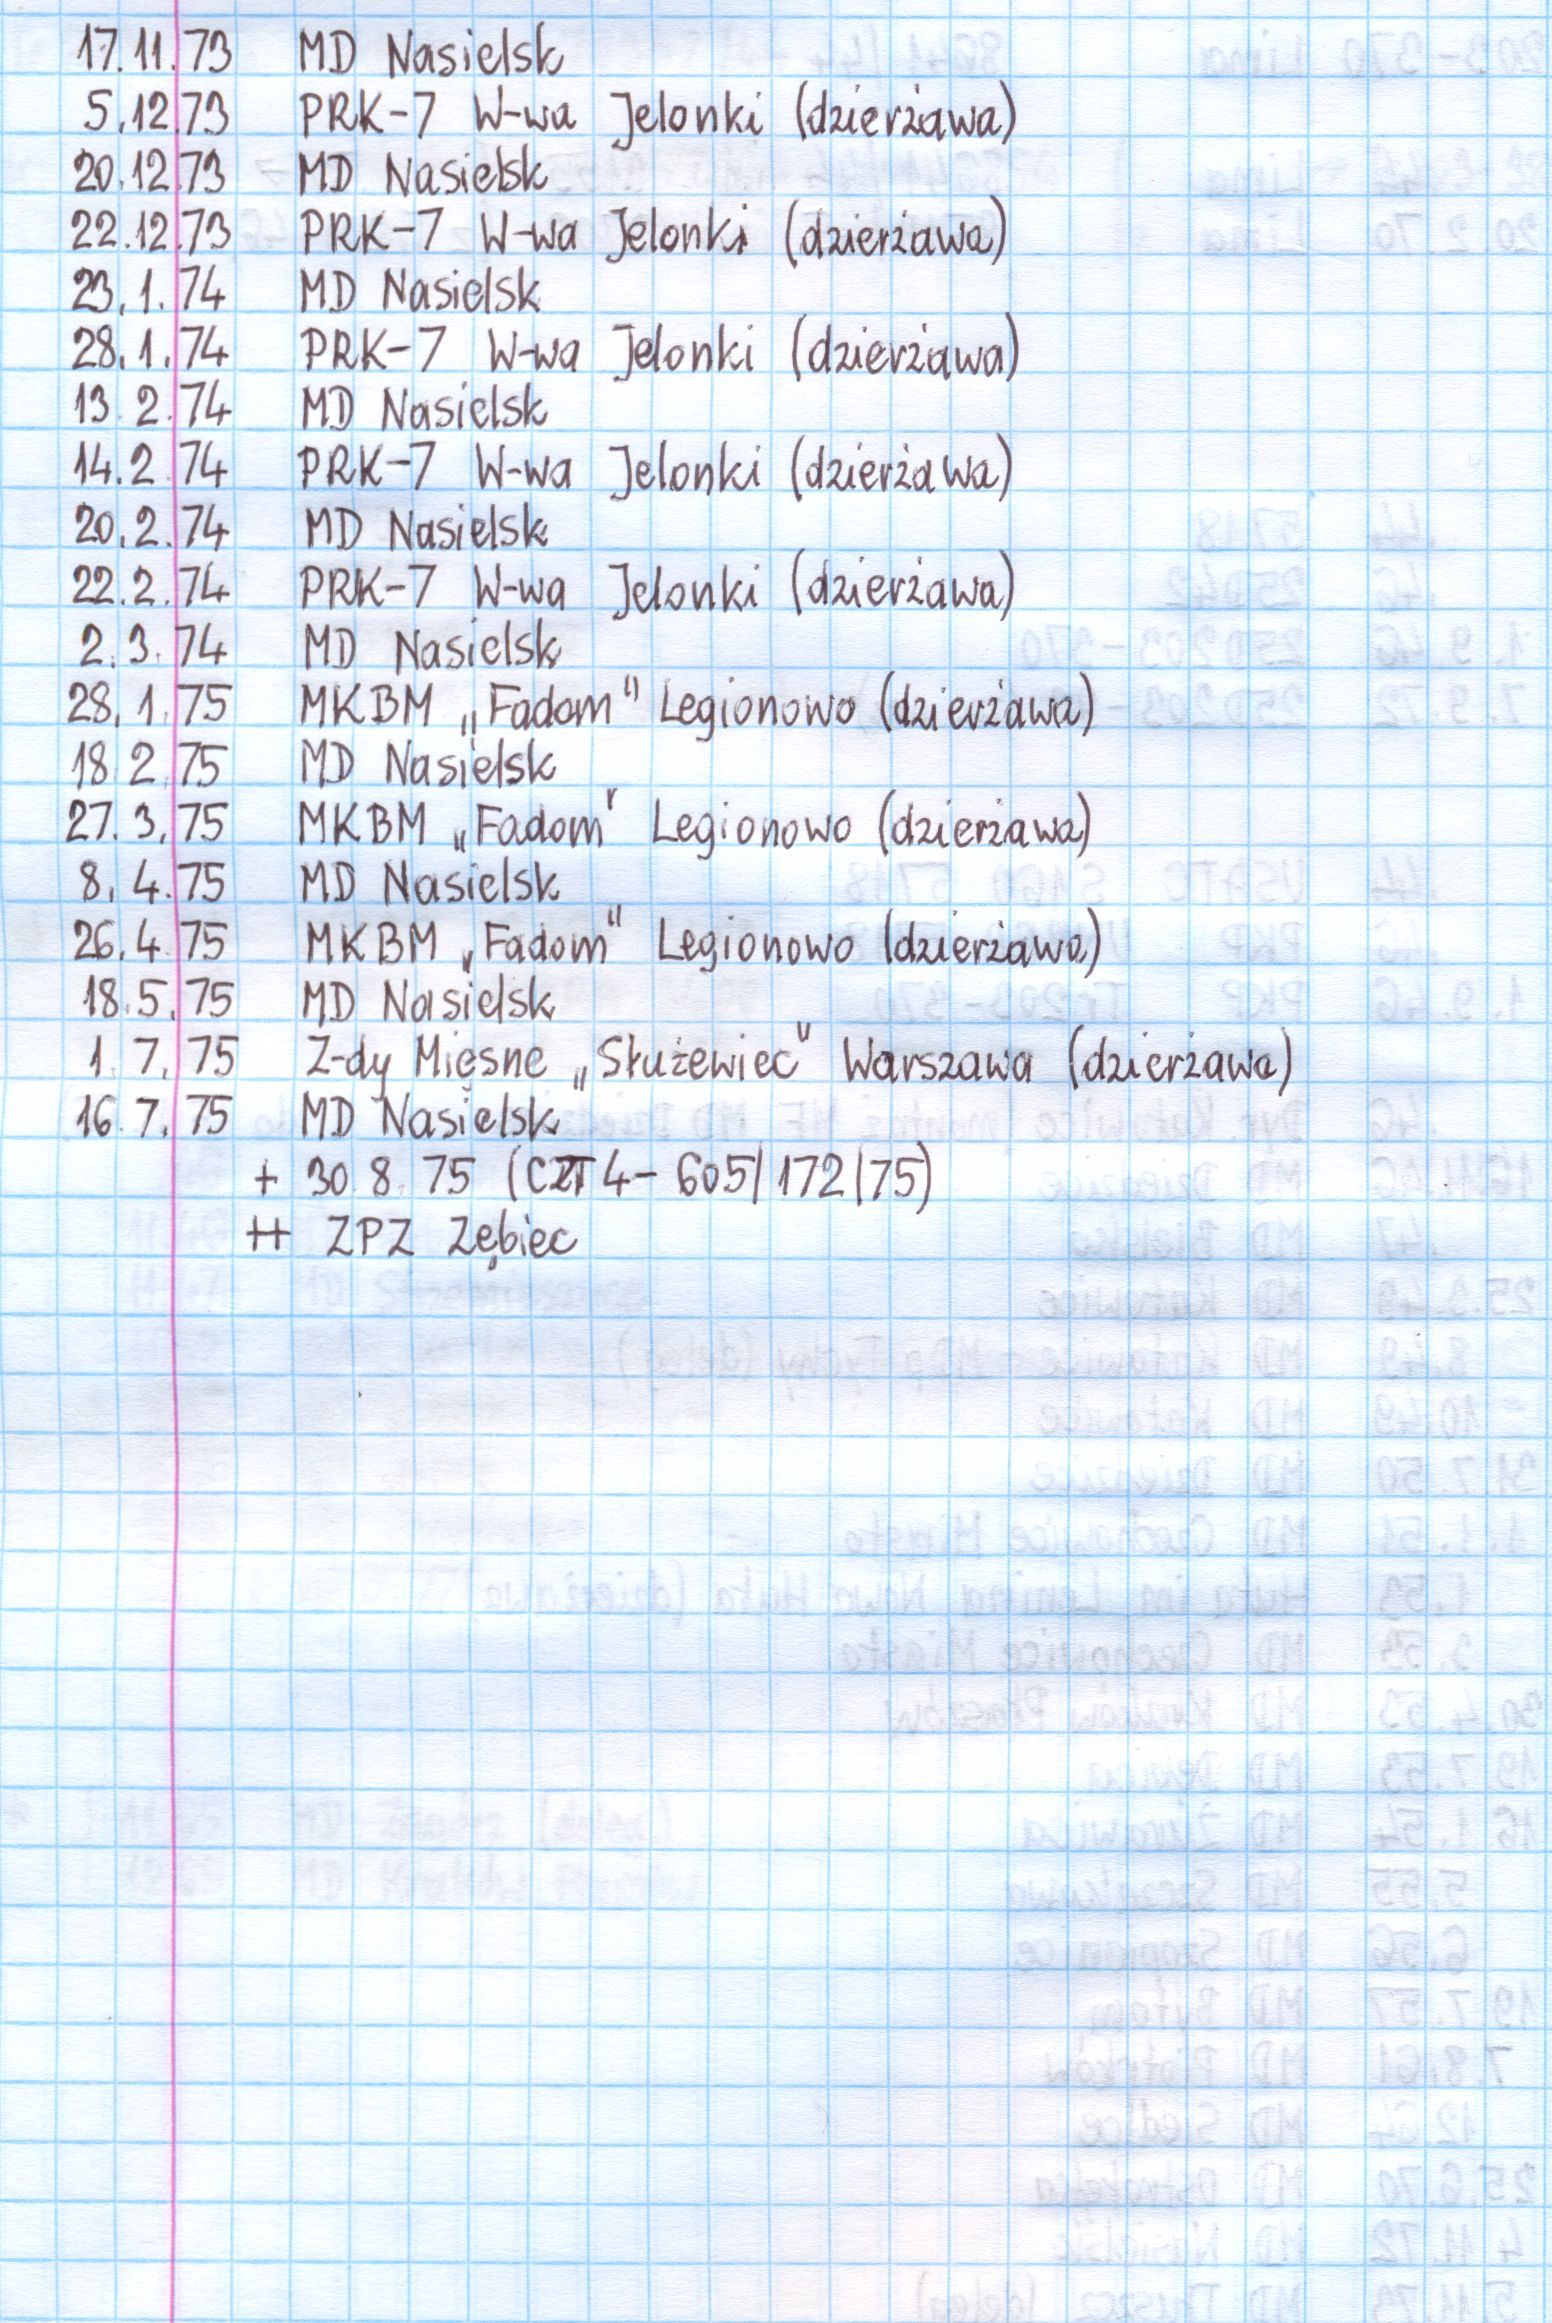 17.11.73 MD Nasielsk
5.12.73 PRK-7 W-wa Jelonki (dzierżawa)
20.12.73 MD Nasielsk
22.12.73 PRK-7 W-wa Jelonki (dzierżawa)
23.1.74 MD Nasielsk
28.1.74 PRK-7 W-wa Jelonki (dzierżawa)
13.2.74 MD Nasielsk
14.2.74 PRK-7 W-wa Jelonki (dzierżawa)
20.2.74 MD Nasielsk
22.2.74 PRK-7 W-wa Jelonki (dzierżawa)
2.3.74 MD Nasielsk
28.1.75 MKBM „Fadom" Legionowo (dzierżawa)
18.2.75 MD Nasielsk
27.3.75 MKBM „Fadom" Legionowo (dzierżawa)
8.4.75 MD Nasielsk
26.4.75 MKBM „Fadom" Legionowo (dzierżawa)
18.5.75 MD Nasielsk
1.7.75 Z-dy Mięsne „Służewiec" Warszawa (dzierżawa)
16.7.75 MD Nasielsk
+ 30.8.75 ( 4-605/172/75)
++ ZPZ Zębiec